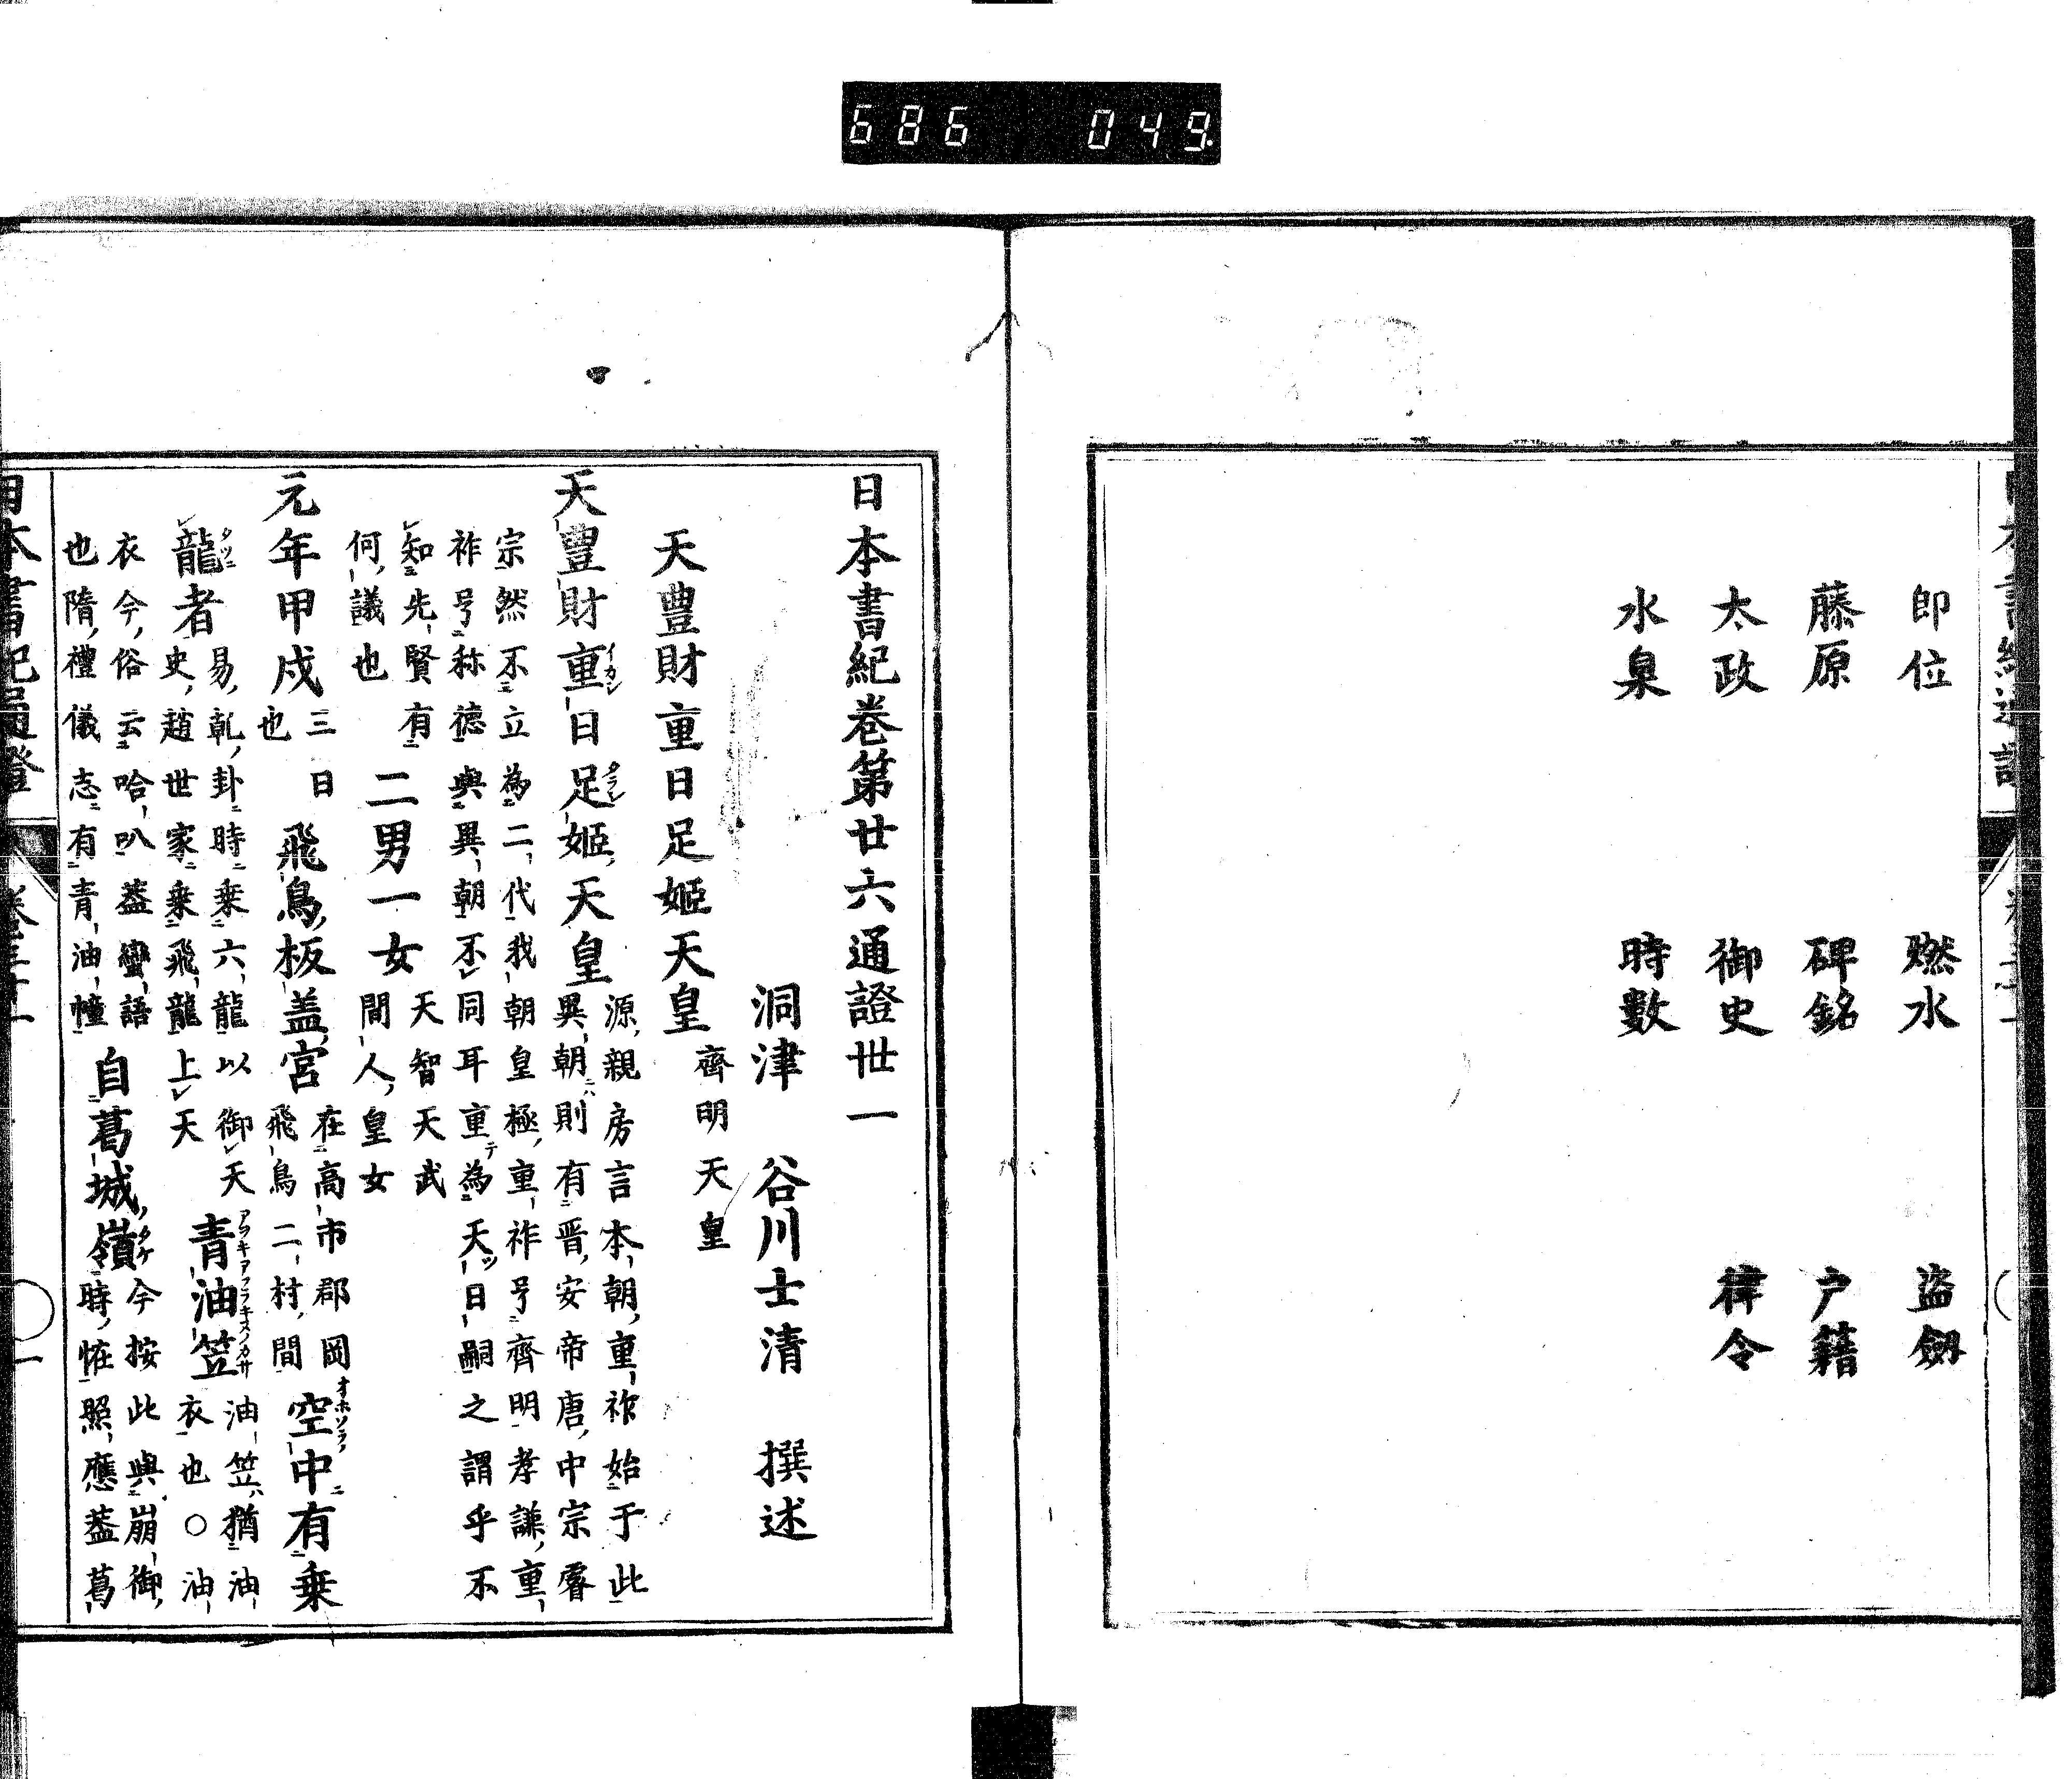 即位　燃水　盗劔
藤原　碑銘　戸籍
太政　御史　律令
水臬　時數
686 049
日本書紀卷第廿六通證丗一
洞津　谷川士清　撰述
天豊財重日足姫天皇 齊明天皇
天豊財重イカシ日足タラシ姫天皇 源親房言本朝重祚始于此異朝則有晋安帝唐中宗睿
宗然不立為二代我朝皇極重祚号齊明孝謙重
祚号称德與異朝不同耳重為天日嗣之謂乎不
知先賢有何議也 二男一女 天智天武間人皇女
元年甲戌 三日也 飛鳥板盖宮 在高市郡岡飛鳥二村間 空中オホソラノ有乗
龍タツニ者 易乾卦時乗六龍以御天史趙世家乗飛龍上天 青油笠アヲキアフラキヌノカサ 油笠猶油衣也○油
衣今俗云哈叭葢蠻語也隋禮儀志有青油幢 自葛城嶺タケ 今按此與崩御時恠照應葢葛
日本書紀通證　卷三十一　一